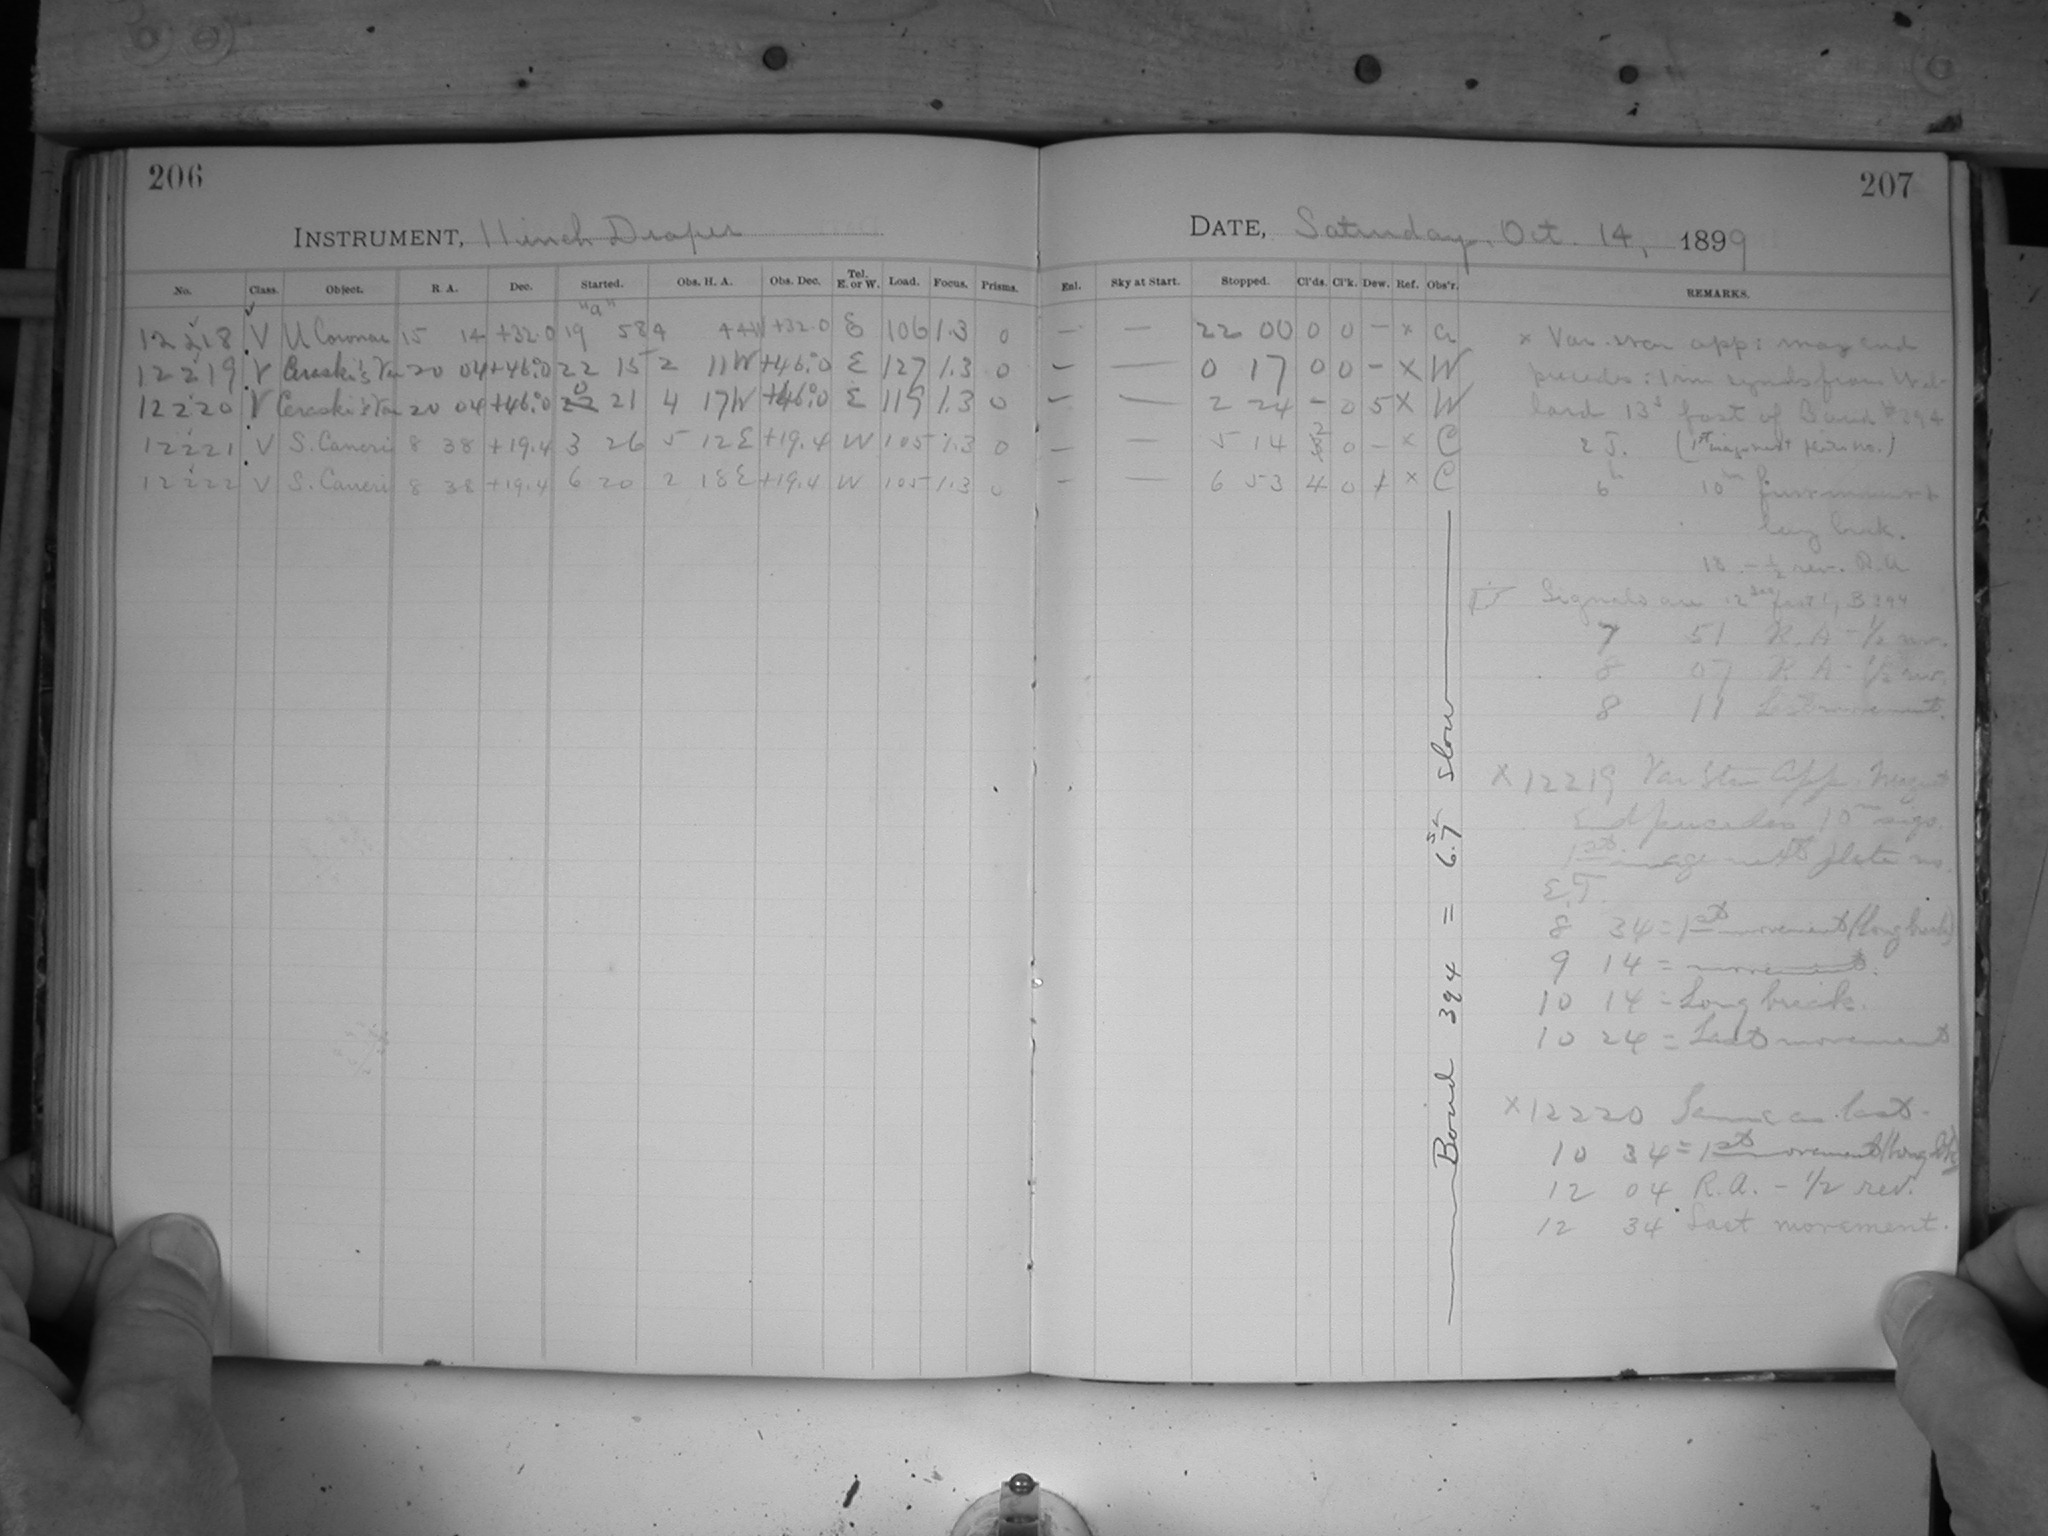 206
INSTRUMENT, 11 inch Draper
No. Class. Object. R. A. Dec. Started. Obs. H. A. Obs. Dec. Tel. E. or W. Load. Focus. Prisms.
"a"
12218 V U Coronae 15 14 +32.0 19 58 4 44W +32.0 E 106 1.3 0
12219 V Ceraski's Va 20 04 +46.0 22 15 2 11W +46.0 E 127 1.3 0
12220 V Ceraski's Va 20 04 +46.0 0 21 4 17W +46.0 E 119 1.3 0
12221 V S. Cancri 8 38 +19.4 3 26 5 12E +19.4 W 105 1.3 0
12222 V S. Cancri 8 38 +19.4 6 20 2 18E +19.4 W 105 1.3 0
207
DATE, Saturday, Oct. 14, 1899
Enl. Sky at Start. Stopped. Cl'ds. Cl'k. Dew. Ref. Obs'r. REMARKS.
— — 22 00 0 0 — x a
— — 0 17 0 0 — X W
— — 2 24 — 0 5 X W
— — 5 14 2 0 — x C
— — 6 53 4 0 x C
x Var. star opp: mag end
precedes: 1m signals from Wil-
lard 13s fast of Bond 394
E.T. (1st image next plate no.)
6h 10m first movement
long break.
18 - 1/2 rev. R.A
Signals are 12sec fast of B 394
7 51 R.A - 1/2 rev.
8 07 R A - 1/2 rev.
8 11 Last movement.
X 12219 Var Star Opp. Magnet
End precedes 10m sigs.
1st image next plate no.
E.T.
8 34 = 1st movement (long break)
9 14 = movement.
10 14 = Long break.
10 24 = Last movement
X 12220 Same as last.
10 34 = 1st movement (long
12 04 R.A. - 1/2 rev.
12 34 Last movement.
Bond 394 = 6.7s slow